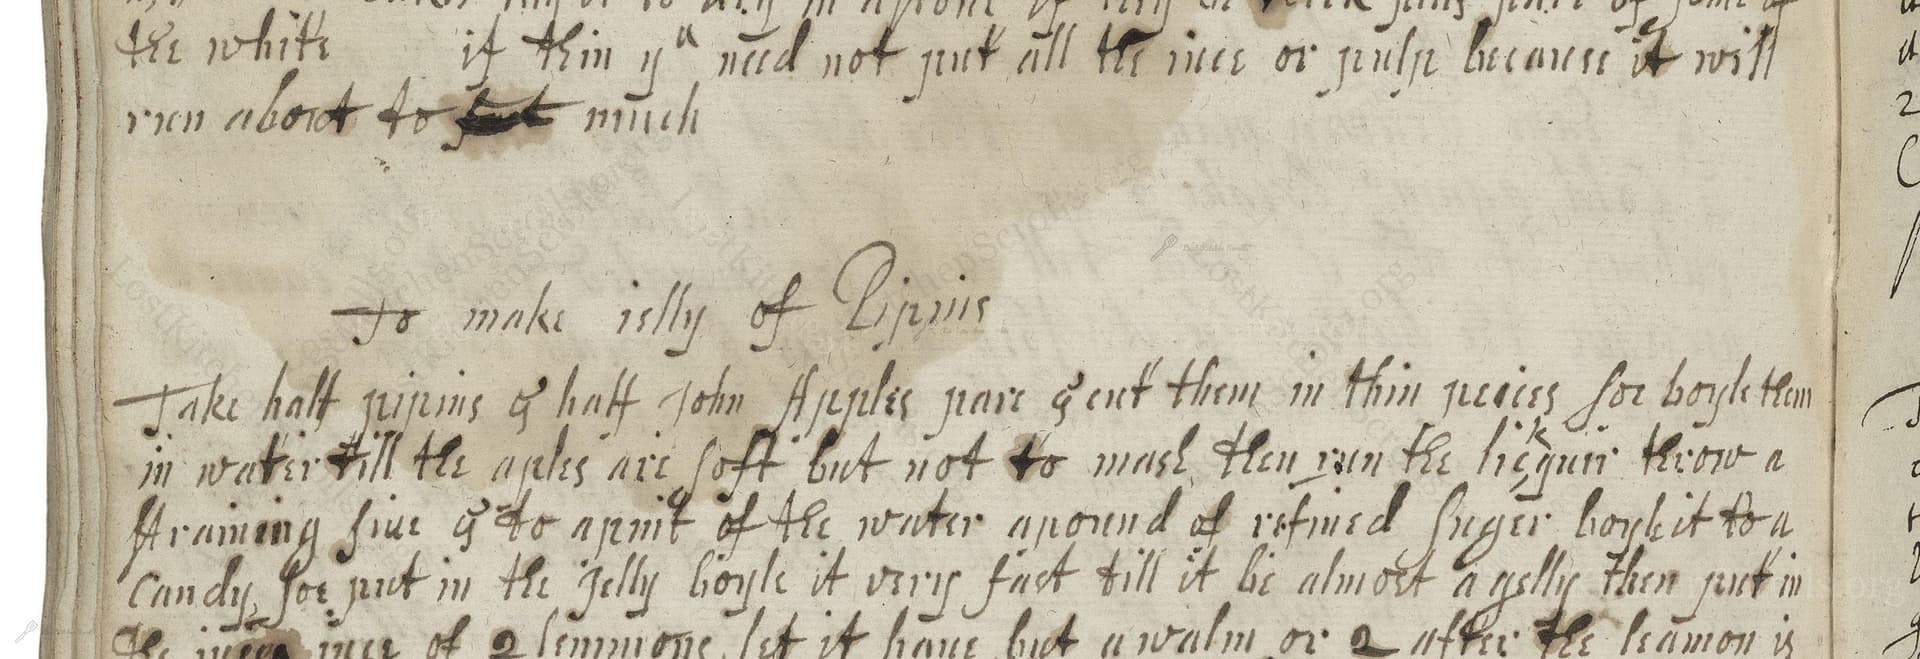 the white if thin yu need not put all the iuce or pulp because it will
run about to much
To make ielly of Pipins
Take half pipins & half John Apples pare & cut them in thin peices soe boyle them
in water till the aples are soft but not to mash then run the licquir throw a
straining siue & to a pint of the water a pound of refined suger boyle it to a
Candy soe put in the Jelly boyle it very fast till it be almost a gelly then put in
the iuce of 2 lemmons let it haue but a walm or 2 after the leamon is